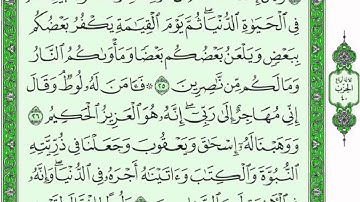 فِي ٱلْحَيَوٰةِ ٱلدُّنْيَا ۖ ثُمَّ يَوْمَ ٱلْقِيَٰمَةِ يَكْفُرُ بَعْضُكُم
بِبَعْضٍ وَيَلْعَنُ بَعْضُكُم بَعْضًا وَمَأْوَىٰكُمُ ٱلنَّارُ
وَمَا لَكُم مِّن نَّٰصِرِينَ ٢٥ ۞ فَـَٔامَنَ لَهُۥ لُوطٌ ۘ وَقَالَ
إِنِّي مُهَاجِرٌ إِلَىٰ رَبِّيٓ ۖ إِنَّهُۥ هُوَ ٱلْعَزِيزُ ٱلْحَكِيمُ ٢٦
وَوَهَبْنَا لَهُۥٓ إِسْحَٰقَ وَيَعْقُوبَ وَجَعَلْنَا فِي ذُرِّيَّتِهِ
ٱلنُّبُوَّةَ وَٱلْكِتَٰبَ وَءَاتَيْنَٰهُ أَجْرَهُۥ فِي ٱلدُّنْيَا ۖ وَإِنَّهُۥ
الحزب
٤٠